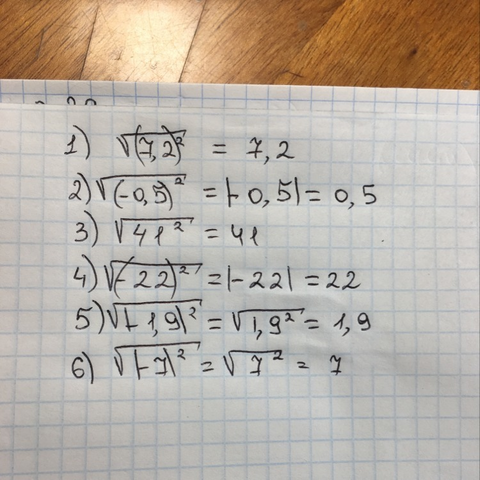 1) √(7,2)² = 7,2
2) √(-0,5)² = |-0,5| = 0,5
3) √41² = 41
4) √(-22)² = |-22| = 22
5) √|-1,9|² = √1,9² = 1,9
6) √|-7|² = √7² = 7